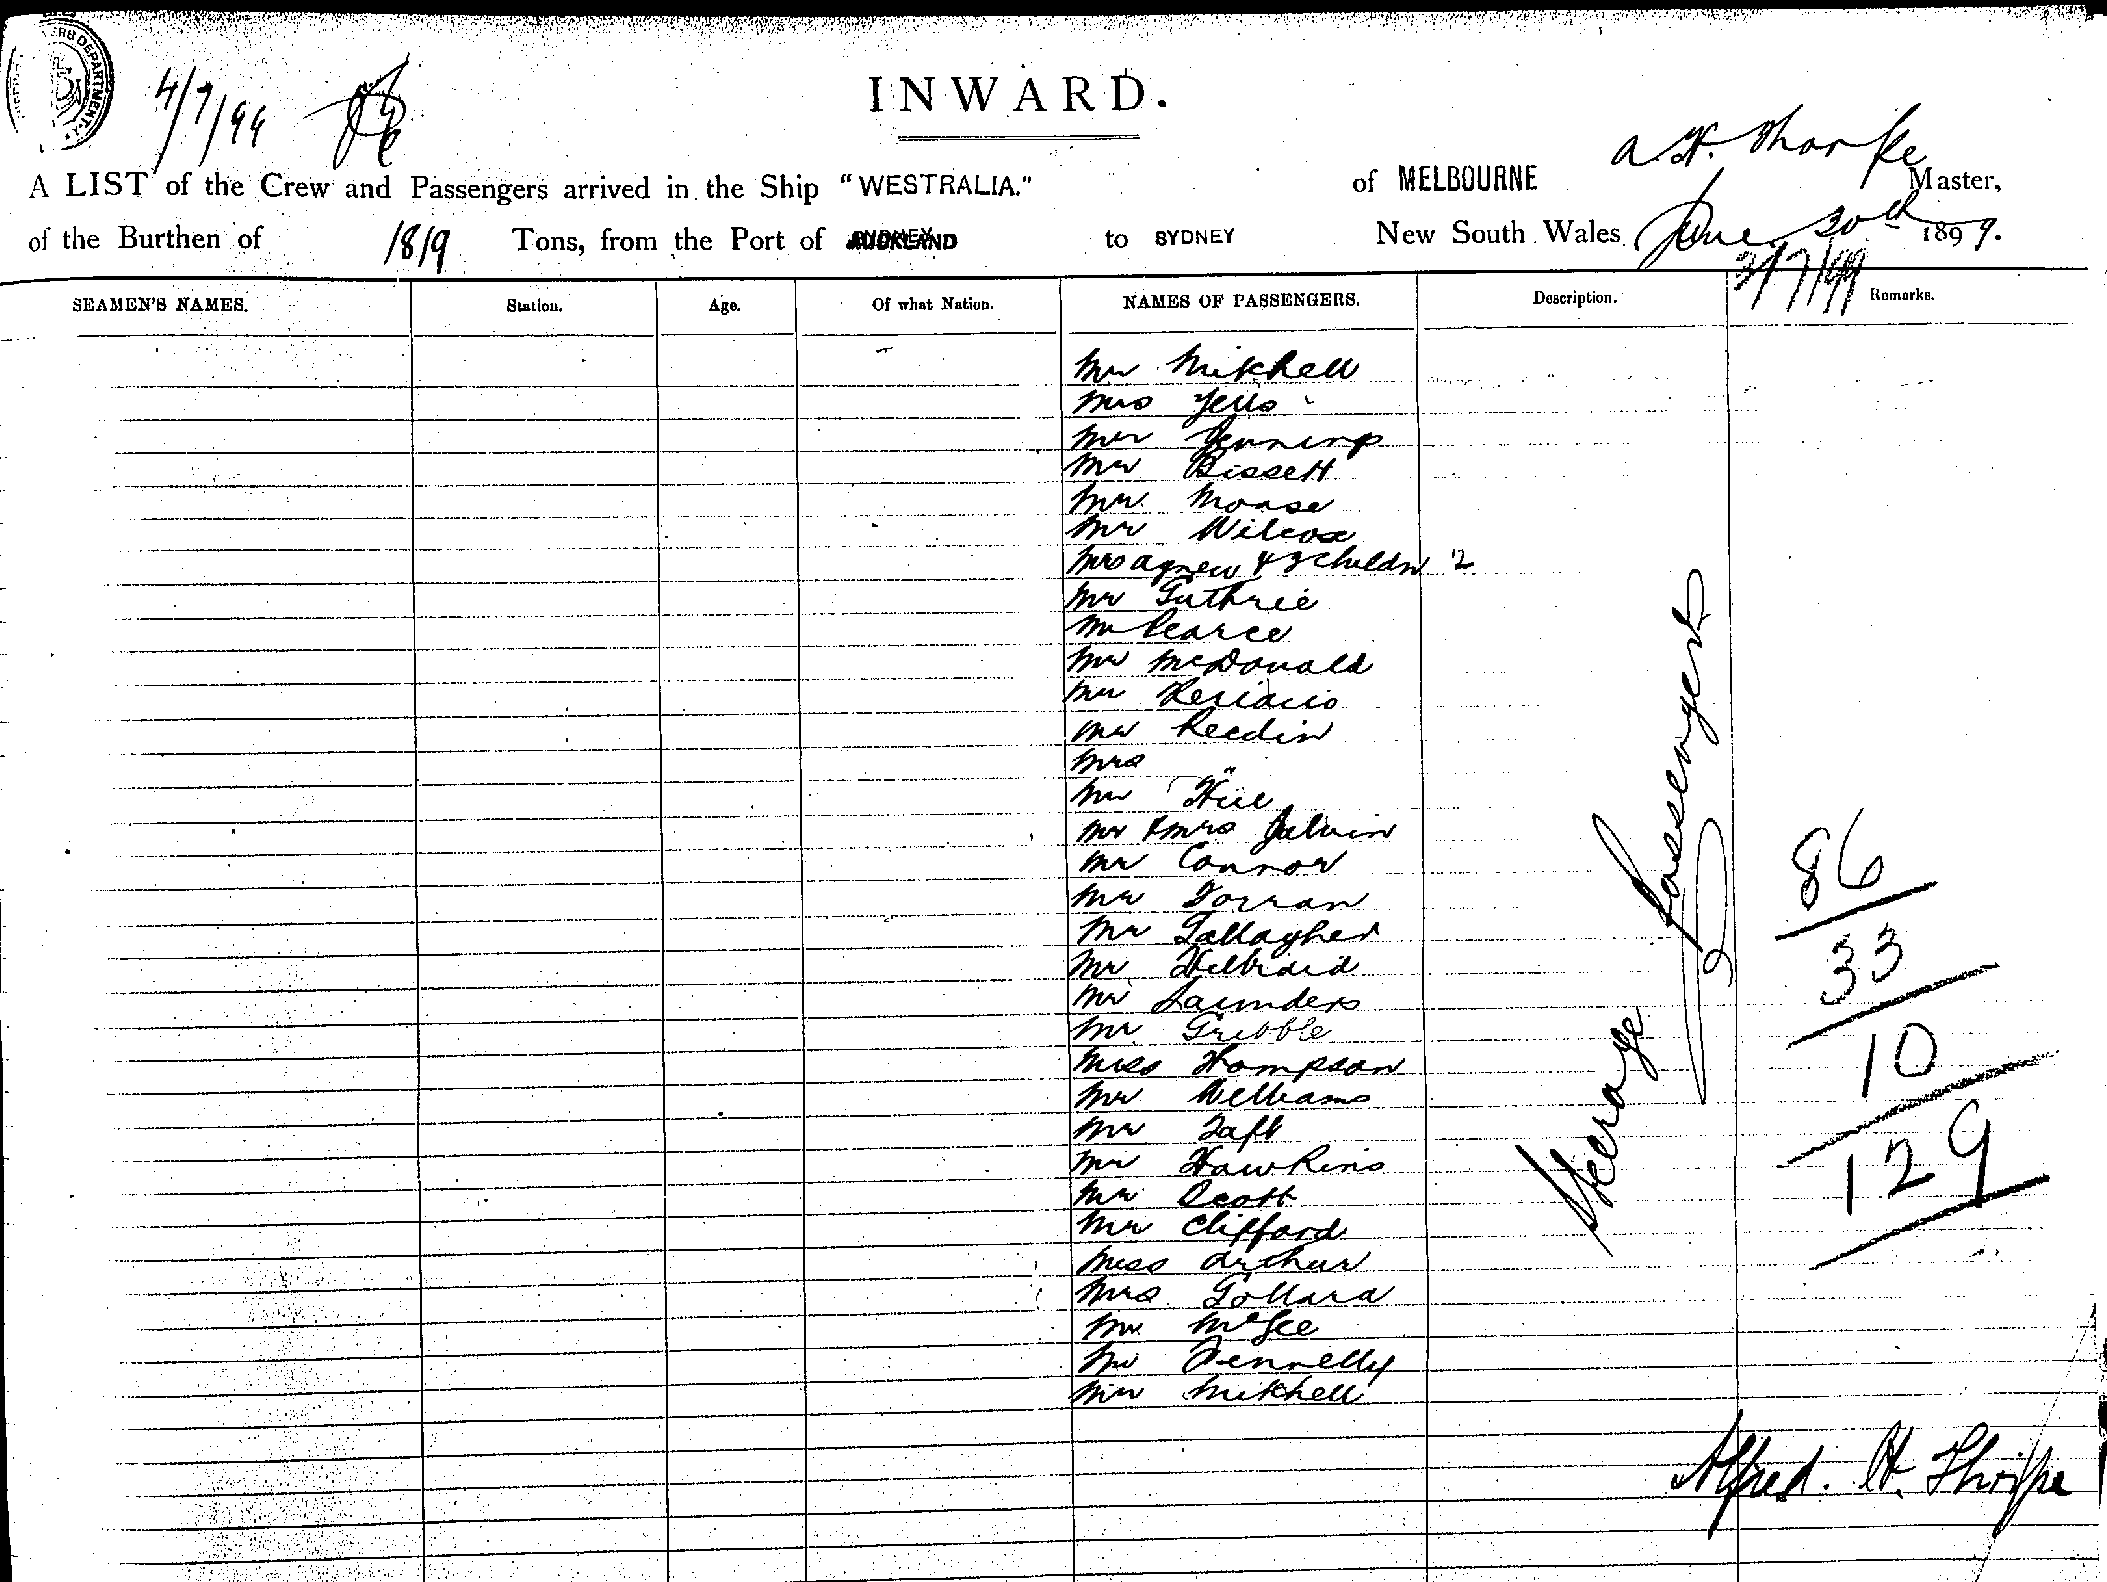 4/7/99
INWARD.
A LIST of the Crew and Passengers arrived in the Ship "WESTRALIA." of MELBOURNE A. H. Thorpe Master,
of the Burthen of 1819 Tons, from the Port of AUCKLAND to SYDNEY New South Wales June 30th 1899.
3/7/99
SEAMEN'S NAMES. Station. Age. Of what Nation. NAMES OF PASSENGERS. Description. Remarks.
Mr Mitchell
Mrs
Mr Jennings
Mr Bissett
Mr Morse
Mr Wilcox
Mrs Agnew & 3 childn 2
Mr Guthrie
Mr Pearce
Mr McDonald
Mr
Mr Reedin
Mrs "
Mr Hill
Mr & Mrs Galvin
Mr Connor
Mr Torran
Mr Gallagher
Mr
Mr Saunders
Mr Gribble
Miss Thompson
Mr Williams
Mr Taft
Mr Hawkins
Mr Scott
Mr Clifford
Miss Arthur
Mrs Gollard
Mr McGee
Mr Dennelly
Mr Mitchell
Steerage Passengers
86
33
10
129
Alfred. H. Thorpe